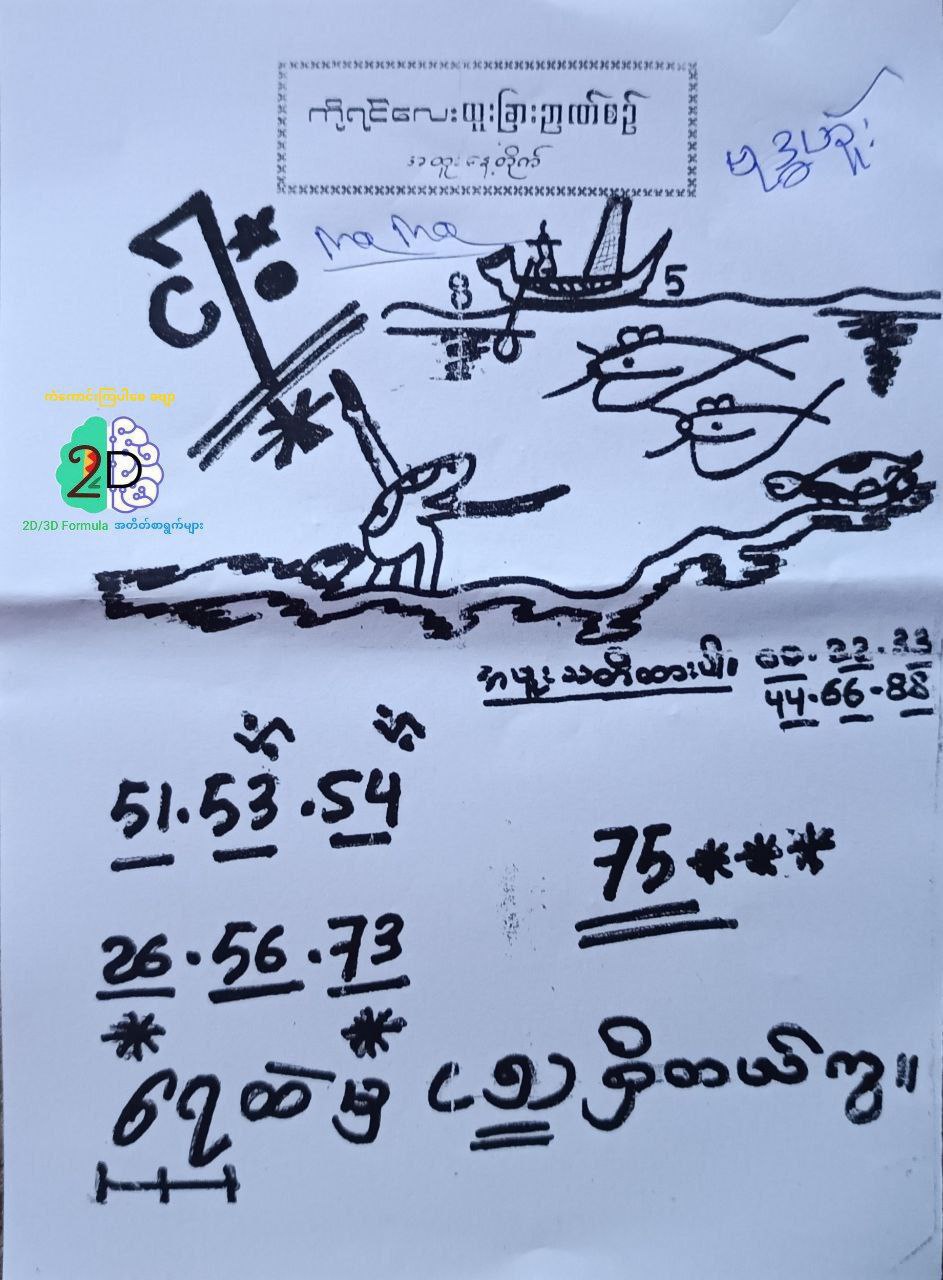 ကိုရင်လေးထူးခြားဉာဏ်စဉ်
အထူးနေ့တိုက်
Ma Ma
8 5
ကံကောင်းကြပါစေ ခဗျာ
2D
2D/3D Formula အတိတ်စာရွက်များ
အထူးသတိထားပါ။ 00.22.33
44.66.88
51.53.54
75***
26.56.73
ရေထဲမှ (၅) ရှိတယ်ကွ။